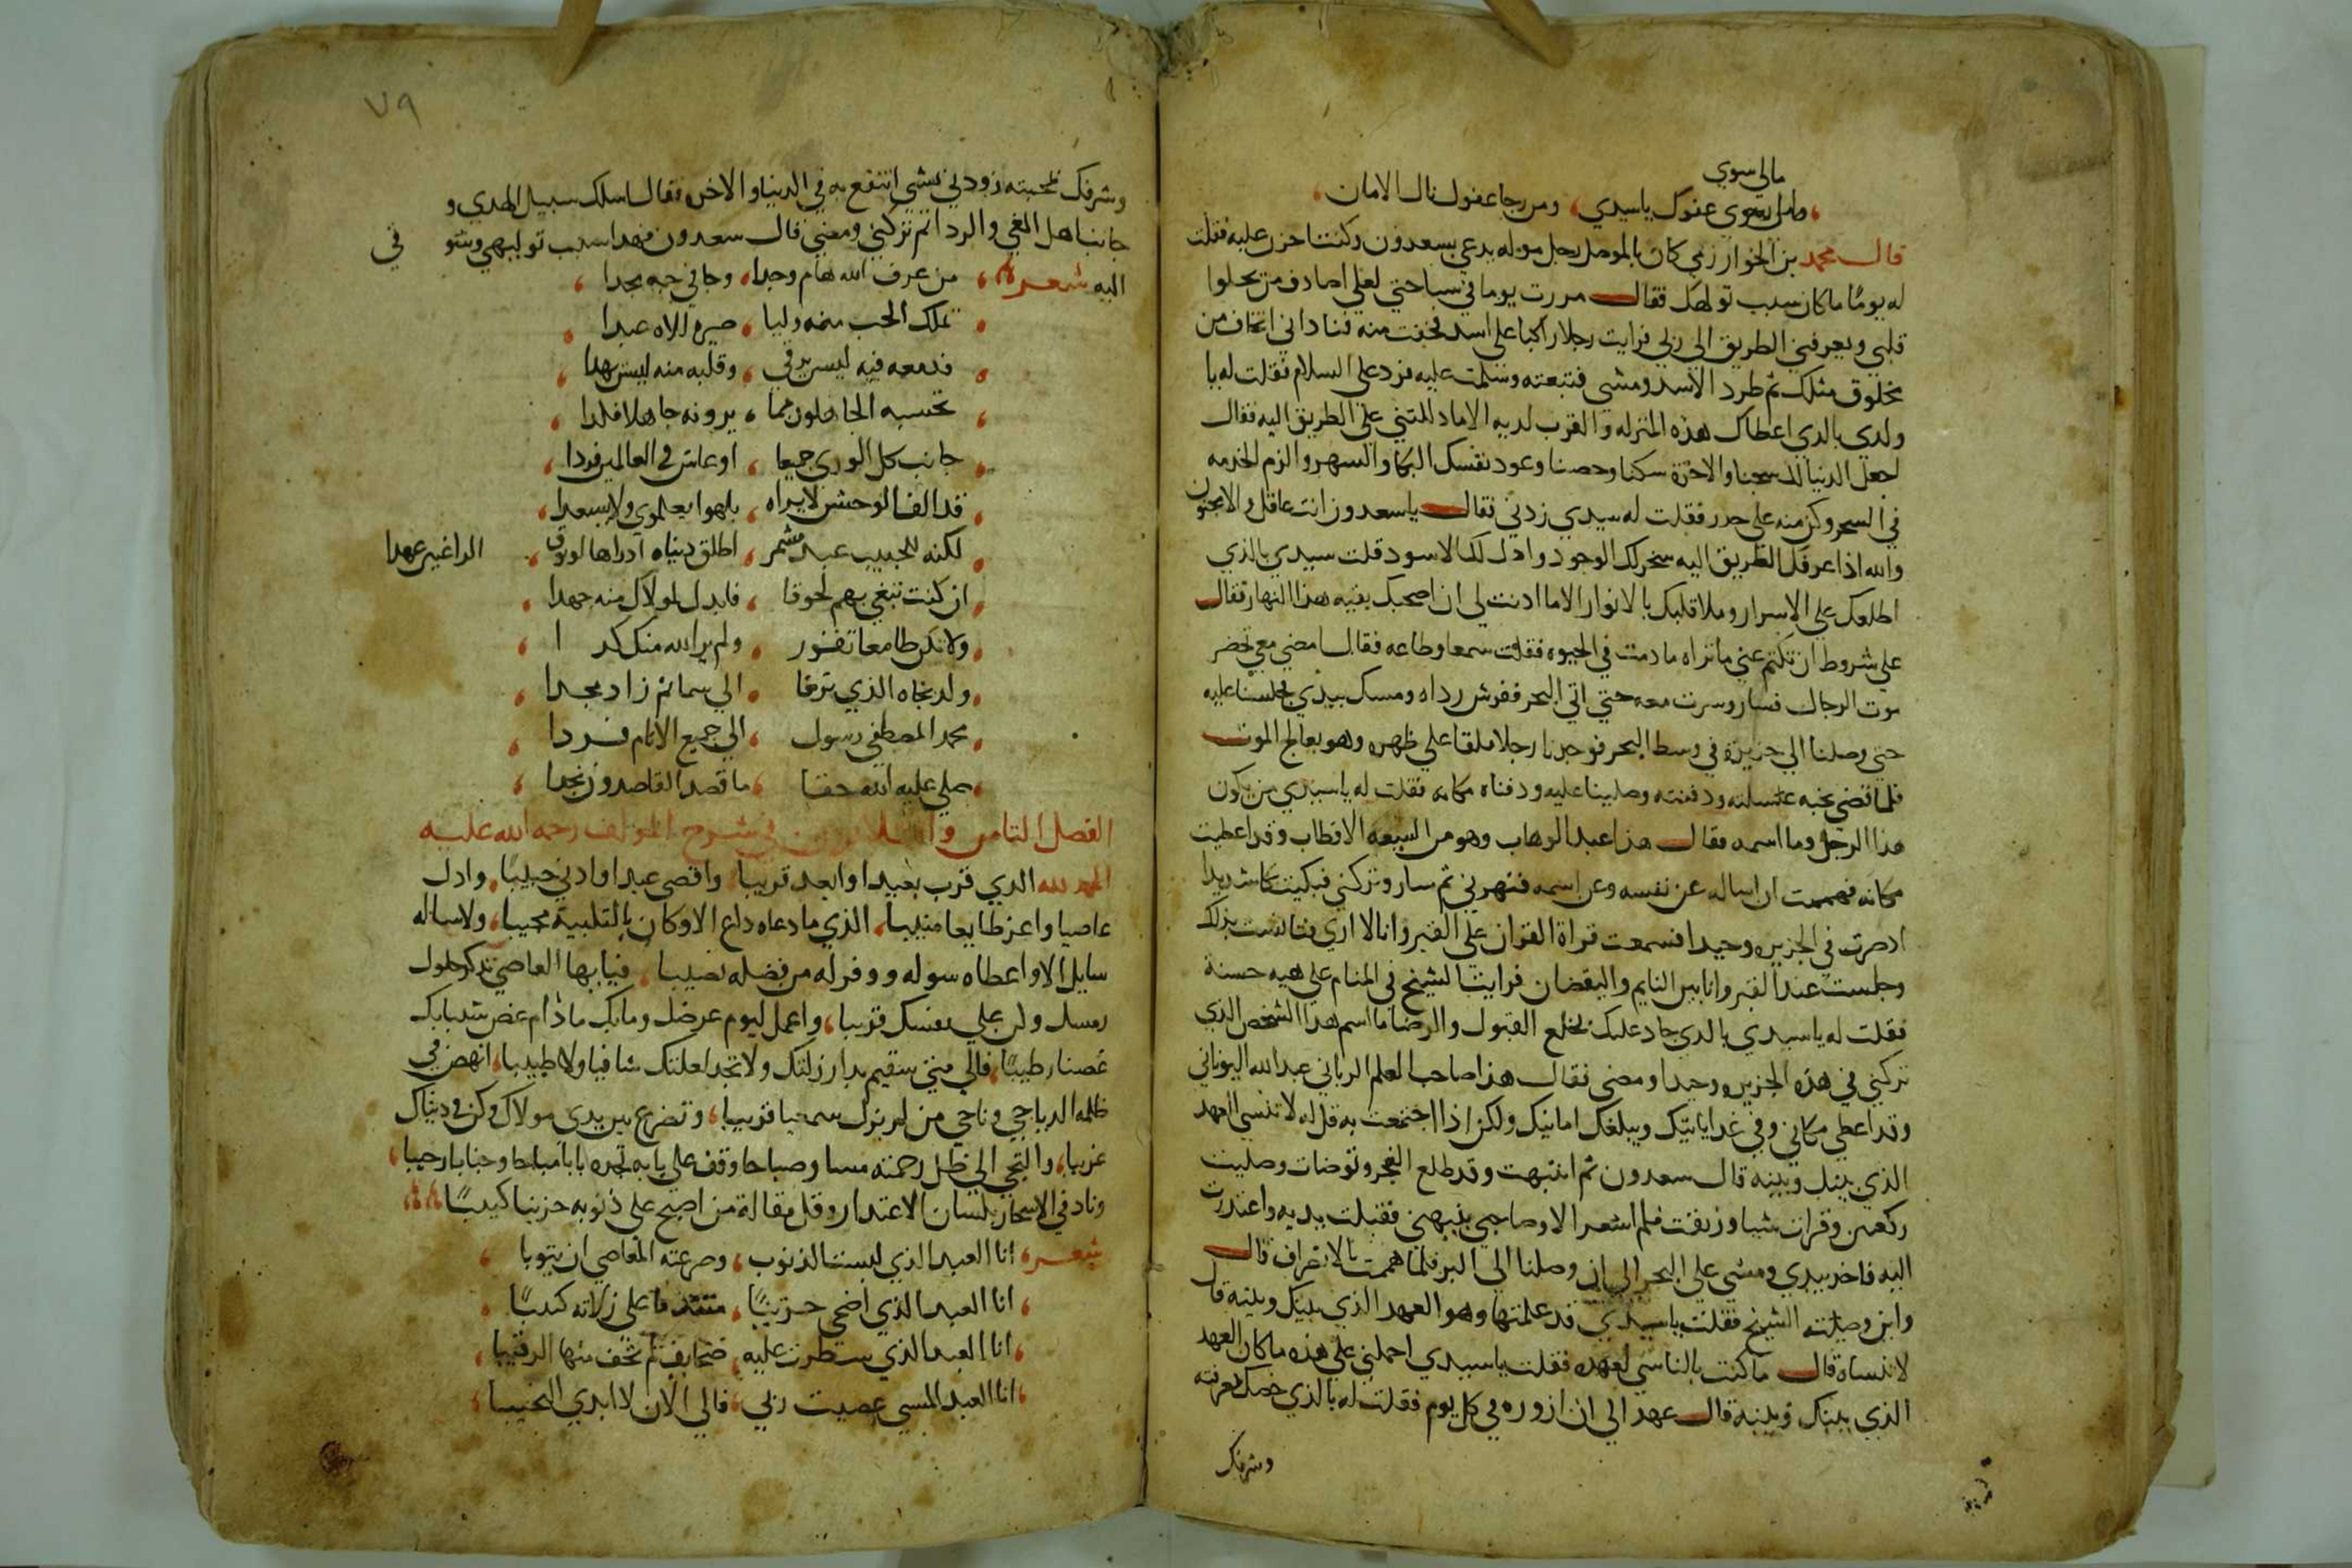 مالي سوي
عفوك ياسيدي، ومن رجا عفوك نال الامان
قال محمد بن الخوارزمي كان بالموصل رجل موله يدعي بسعدون وكنت احزن عليه فقلت
له يوما ما كان سبب تولهك فقال مررت يوما في سياحتي لعلي اصادف من يجلوا
قلبي ويعرفني الطريق الي ربي فرايت رجلا راكبا علي اسد فخفت منه فناداني اتخاف من
مخلوق مثلك ثم طرد الاسد ومشي فتبعته وسلمت عليه فرد علي السلام فقلت له يا
ولدي بالذي اعطاك هذه المنزله والقرب لديه الاما دللتني علي الطريق اليه فقال
اجعل الدنيا لك سجنا والاخرة سكنا وحصنا وعود نفسك البكا والسهر والزم الخدمه
في السحر وكن منه علي حدر فقلت له سيدي زدني فقال يا سعدون انت عاقل والا مجنون
والله اذا عرفك الطريق اليه سخر لك الوجود واذل لك الاسود قلت سيدي بالذي
اطلعك علي الاسرار وملا قلبك بالانوار الاما ادنت لي ان اصحبك بقيه هذا النهار فقال
علي شروط ان تكتم عني ما تراه ما دمت في الحيوه فقلت سمعا وطاعه فقال امضي معي نحضر
موت الرجال فسار وسرت معه حتي اتي البحر ففرش رداه ومسك بيدي فجلسنا عليه
حتي وصلنا الي جزيرة في وسط البحر فوجدنا رجلا ملقا علي ظهره وهو يعالج الموت
فلما قضي نحبه غسلته ودفنته وصلينا عليه ودفناه مكانه فقلت له يا سيدي من يكون
هذا الرجل وما اسمه فقال هذا عبد الوهاب وهو من السبعه الاقطاب وقد اعطيت
مكانه فهممت ان اساله عن نفسه وعن اسمه فنهرني ثم سار وتركني فبكيت بكا شديدا
اد صرت في الجزيره وحيدا فسمعت قراة القران علي القبر وانا لا اري فتانست بذلك
وجلست عند القبر وانا بين النايم واليقضان فرايت الشيخ في المنام علي هيه حسنة
فقلت له يا سيدي بالذي جاد عليك بخلع القبول والرضا ما اسم هذا الشخص الذي
تركني في هذه الجزيره وحيدا ومضي فقال هذا صاحب العلم الرباني عبد الله اليوناني
وقد اعطي مكاني وفي غد ياتيك ويبلغك امانيك ولكن اذا اجتمعت به قل له لا تنسي العهد
الذي بينك وبينه قال سعدون ثم انتبهت وقد طلع الفجر وتوضات وصليت
ركعتين وقرات شيا ورقت فلم اشعر الا وصاحبي ينبهني فقبلت يديه واعتدرت
اليه فاخد بيدي ومشي علي البحر الي ان وصلنا الي البر فلما هممت بالانصراف قال
واين وصيت الشيخ فقلت يا سيدي قد علمتها وهو العهد الذي بينك وبينه قال
لا تنساه قال ما كنت بالناسي لعهده فقلت يا سيدي احملني علي هذه ما كان العهد
الذي بينك وبينه قال عهد الي ان ازوره في كل يوم فقلت له بالذي خصك بمعرفته
وشرفك
٧٩
وشرفك بمحبته زودني بشي انتفع به في الدنيا والاخره فقال اسلك سبيل الهدي و
جانب اهل الغي والردا ثم تركني ومضي قال سعدون فهدا سبب تولهي وشو في
اليه شعر من عرف الله هام وجدا، وجا في حبه مجدا
تملك الحب منه وليا، صيره للاه عبدا
فدمعه فيه ليس يرقي، وقلبه منه ليس يهدا
تحسبه الجاهلون مما، يرونه جاهلا فلدا
جانب كل الوري جميعا، او عاش في العالمين فردا
قد الف الوحش لا يراه، يلهوا بعلوي ولا بسعدا
لكنه للحبيب عبد مشمر، اطلق دنياه ادراها لوفق الراغبين عهدا
ان كنت تبغي بهم لحوقا، فابدل لمولاك منه جهدا
ولا تكن طامعا تفوز، ولم ير الله منك كدا
ولد بجاه الذي ترقا، الي سما ثم زاد مجدا
محمد المصطفي رسول، الي جميع الانام فردا
صلي عليه الله حقا، ما قصد القاصدون نجدا
الفصل الثامن والثلاثون في شرح المولف رحمه الله عليه
الحمد لله الذي قرب بعيدا وابعد قريبا، واقصي عبدا وادني حبيبا، واذل
عاصيا واعز طايعا منيبا، الذي ما دعاه داع الا وكان بالتلبية مجيبا، ولا ساله
سايل الا واعطاه سوله ووفر له من فضله نصيبا، فيا ايها العاصي تدكر حلول
رمسك وكن علي نفسك رقيبا، واعمل ليوم عرضك ومابك مادام غصن شبابك
غصنا رطيبا، فالي متي ستقيم بدار زلتك ولا تجد لعلتك شافيا ولا طبيبا، انهض في
ظلمه الدياجي وناجي من لم يزل سميعا قريبا، وتضرع بين يدي مولاك وكن في دنياك
غريبا، والتجي الي ظل رحمته مسا وصباحا وقف علي بابه تجده بابا مباحا وجنابا رحيبا،
وناد في الاسحار بلسان الاعتدار وقل مقالة من اصبح علي ذنوبه حزينا كئيبا
شعر، انا العبد الذي لبست الذنوب، وصرعته المعاصي ان يتوبا
انا العبد الذي اضحي حزينا، علي زلاته كئيبا
انا العبد الذي سطرت عليه، صحايف لم تخف منها الرقيبا
انا العبد المسي عصيت ربي، فالي الان لا ابدي النحيبا